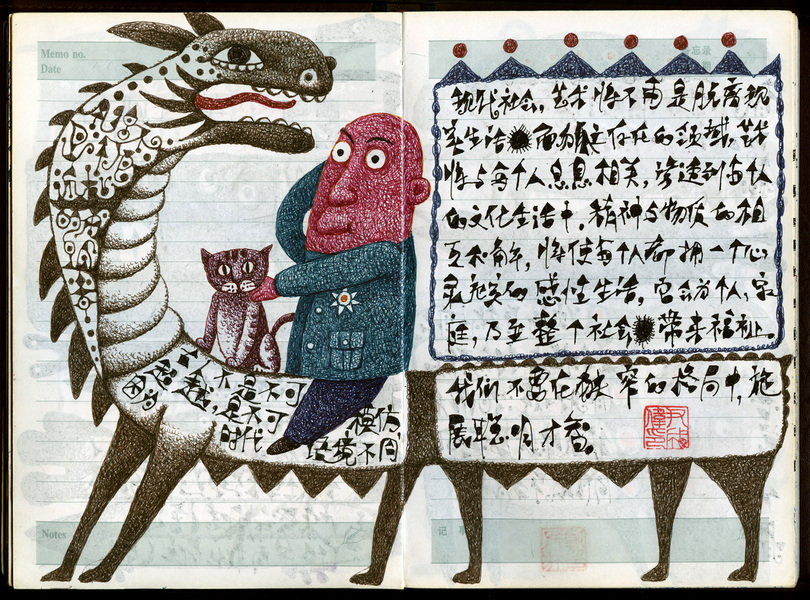 Memo no.
Date
忘录
现代社会，艺术将不再是脱离现
实生活而独立存在的领域，艺术
将与每个人息息相关，渗透到每个人
的文化生活中，精神与物质的相
互不，将使每个人都拥一个心
灵充实的感性生活，它会为个人，家
庭，乃至整个社会带来福祉。
古人不是不可
超越，是不可模仿，
因为时代语境不同
我们不要在狭窄的格局中，施
展聪明才智。
Notes
记